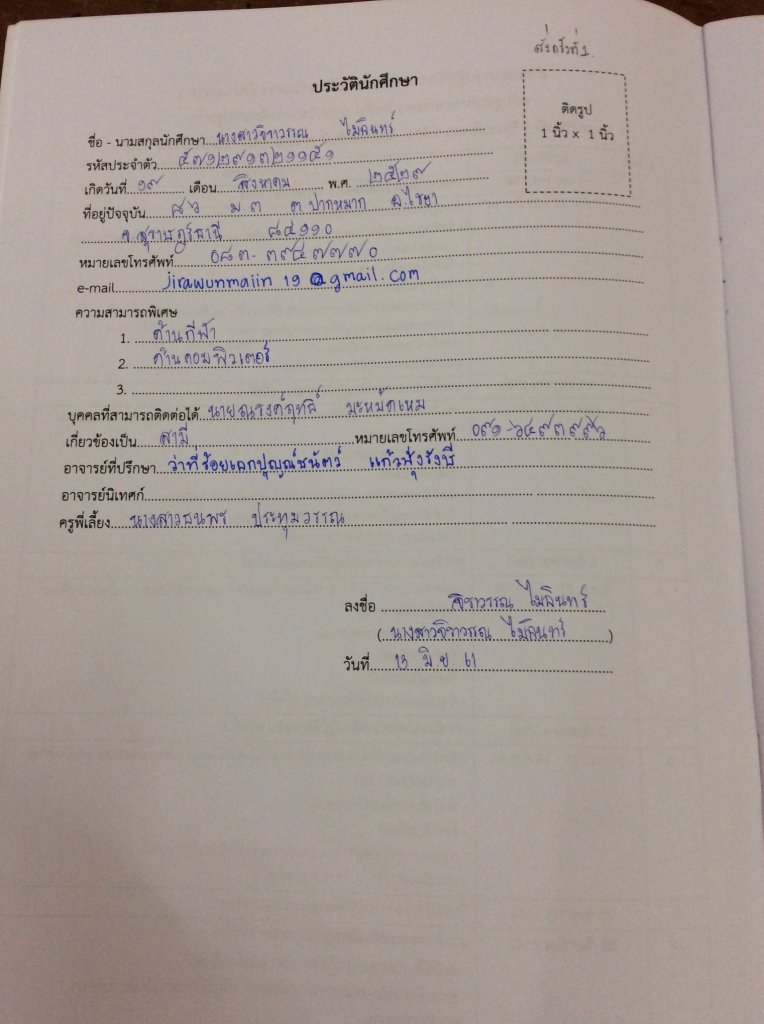 ส่งครั้งที่ 1
ประวัตินักศึกษา
ติดรูป
1 นิ้ว x 1 นิ้ว
ชื่อ - นามสกุลนักศึกษา นางสาวจิราวรรณ ไม้อินทร์
รหัสประจำตัว
เกิดวันที่ ๑๙ เดือน สิงหาคม พ.ศ. ๒๕๒๙
ที่อยู่ปัจจุบัน ๘๖ ม.๓ ต.ปากหมาก อ.ไชยา
จ.สุราษฎร์ธานี ๘๔๑๑๐
หมายเลขโทรศัพท์ ๐๘๓-๓๙๔๗๗๗๐
e-mail jirawunmaiin 19 @gmail.com
ความสามารถพิเศษ
1. ด้านกีฬา
2. ด้านคอมพิวเตอร์
3.
บุคคลที่สามารถติดต่อได้ นายณรงค์ฤทธิ์ มะหมัดเหม
เกี่ยวข้องเป็น สามี หมายเลขโทรศัพท์ ๐๙๑-๖๔๙๓๙๙๖
อาจารย์ที่ปรึกษา ว่าที่ร้อยเอกปุญณ์ชนัตว์ แก้วสุ้งรังษี
อาจารย์นิเทศก์
ครูพี่เลี้ยง นางสาวธนพร ประทุมวรรณ
ลงชื่อ จิราวรรณ ไม้อินทร์
( นางสาวจิราวรรณ ไม้อินทร์ )
วันที่ 13 มิ.ย 61